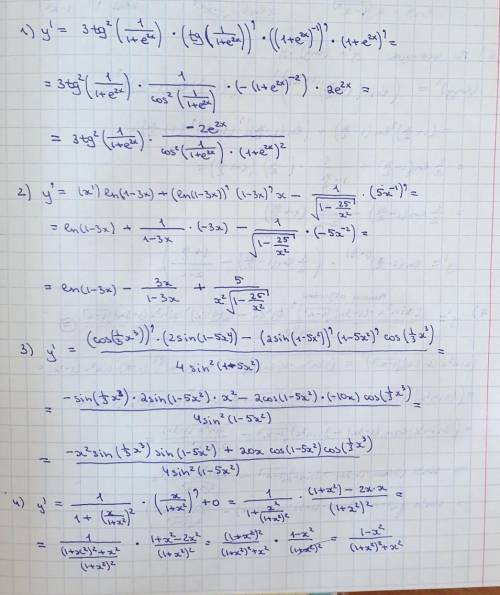 1) y' = 3tg²(1/(1+e^(2x))) · (tg(1/(1+e^(2x))))' · ((1+e^(2x))^(-1))' · (1+e^(2x))' =
= 3tg²(1/(1+e^(2x))) · 1/cos²(1/(1+e^(2x))) · (-(1+e^(2x))^(-2)) · 2e^(2x) =
= 3tg²(1/(1+e^(2x))) · -2e^(2x)/(cos²(1/(1+e^(2x))) · (1+e^(2x))²)
2) y' = (x') ln(1-3x) + (ln(1-3x))' (1-3x)' x - 1/√(1-25/x²) · (5x^(-1))' =
= ln(1-3x) + 1/(1-3x) · (-3x) - 1/√(1-25/x²) · (-5x^(-2)) =
= ln(1-3x) - 3x/(1-3x) + 5/(x²√(1-25/x²))
3) y' = ((cos(1/3x³))' · (2sin(1-5x²)) - (2sin(1-5x²))' (1-5x²)' cos(1/3x³))/(4sin²(1-5x²)) =
= (-sin(1/3x³) · 2sin(1-5x²) · x² - 2cos(1-5x²) · (-10x) cos(1/3x³))/(4sin²(1-5x²)) =
= (-x² sin(1/3x³) sin(1-5x²) + 20x cos(1-5x²) cos(1/3x³))/(4sin²(1-5x²))
4) y' = 1/(1+(x/(1+x²))²) · (x/(1+x²))' + 0 = 1/(1+x²/(1+x²)²) · ((1+x²) - 2x·x)/(1+x²)² =
= 1/(((1+x²)²+x²)/(1+x²)²) · (1+x²-2x²)/(1+x²)² = (1+x²)²/((1+x²)²+x²) · (1-x²)/(1+x²)² = (1-x²)/((1+x²)²+x²)